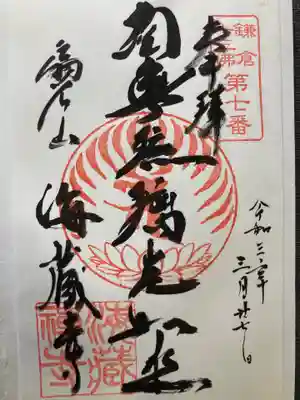 鎌倉
十三佛
第七番
奉拝
令和三年
三月廿七日
薬師琉璃光如来
扇谷山
海蔵寺
海藏
禅寺